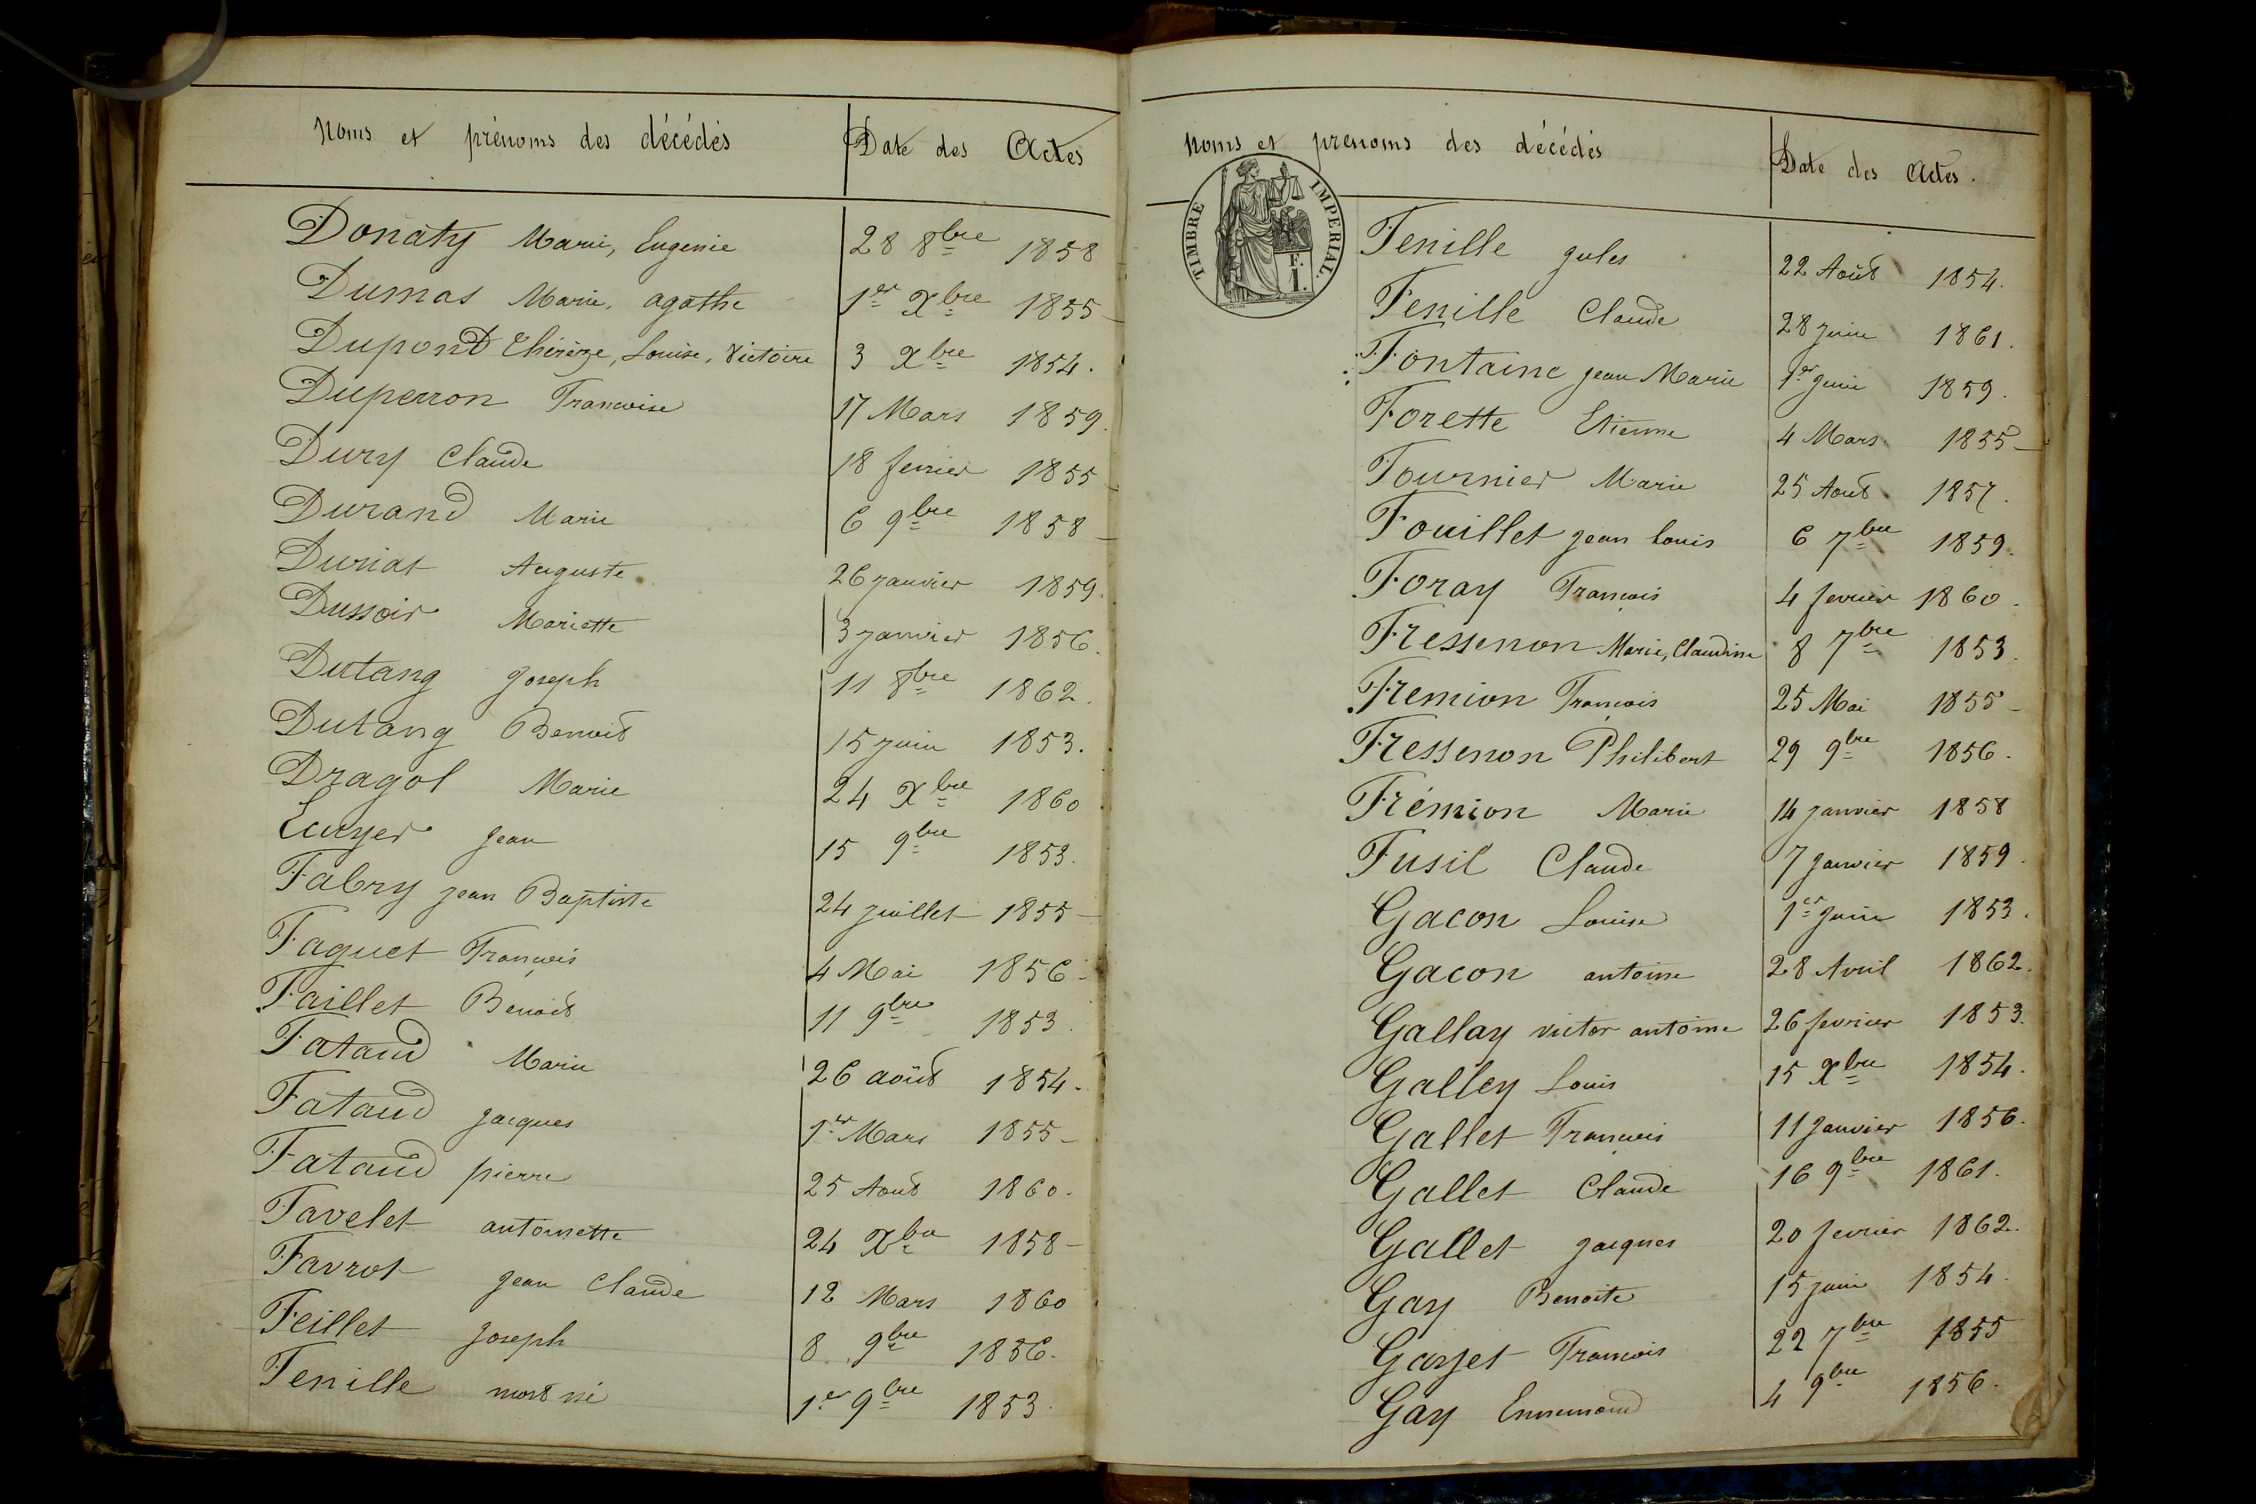 Noms et prénoms des décédés Date des Actes
Donaty Marie, Eugenie 28 8bre 1858
Dumas Marie, agathe 1er Xbre 1855
Dupond Thérèze, Louise, Victoire 3 Xbre 1854.
Duperron Francoise 17 Mars 1859.
Dury Claude 18 fevrier 1855
Durand Marie 6 9bre 1858
Duriat Auguste 26 janvier 1859.
Dussoir Mariette 3 janvier 1856.
Dutang Joseph 11 8bre 1862.
Dutang Benoit 15 juin 1853.
Dragol Marie 24 Xbre 1860
Ecuyer Jean 15 9bre 1853.
Fabry jean Baptiste 24 juillet 1855
Faguet François 4 Mai 1856
Faillet Benoit 11 9bre 1853.
Fataud Marie 26 août 1854.
Fataud Jacques 1er Mars 1855
Fataud pierre 25 Aout 1860.
Favelet antoinette 24 Xbre 1858
Favrot Jean Claude 12 Mars 1860
Feillet Joseph 8 9bre 1856.
Fenille mort né 1er 9bre 1853.
Noms et prenoms des décédés Date des Actes.
TIMBRE IMPERIAL.
F.
1.
Fenille Jules 22 Août 1854.
Fenille Claude 28 juin 1861.
Fontaine jean Marie 1er juin 1859.
Forette Etienne 4 Mars 1855
Fournier Marie 25 Aout 1857.
Fouillet jean Louis 6 7bre 1859.
Foray François 4 fevrier 1860.
Fressenon Marie, Claudine 8 7bre 1853.
Fremion François 25 Mai 1855
Fressenon Philibert 29 9bre 1856.
Frémion Marie 14 janvier 1858
Fusil Claude 7 janvier 1859.
Gacon Louise 1er juin 1853.
Gacon antoine 28 Avril 1862.
Gallay victor antoine 26 fevrier 1853.
Galley Louis 15 Xbre 1854.
Gallet François 11 Janvier 1856.
Gallet Claude 16 9bre 1861.
Gallet Jacques 20 fevrier 1862.
Gay Benoite 15 juin 1854.
Gayet Francois 22 7bre 1855
Gay Ennemond 4 9bre 1856.